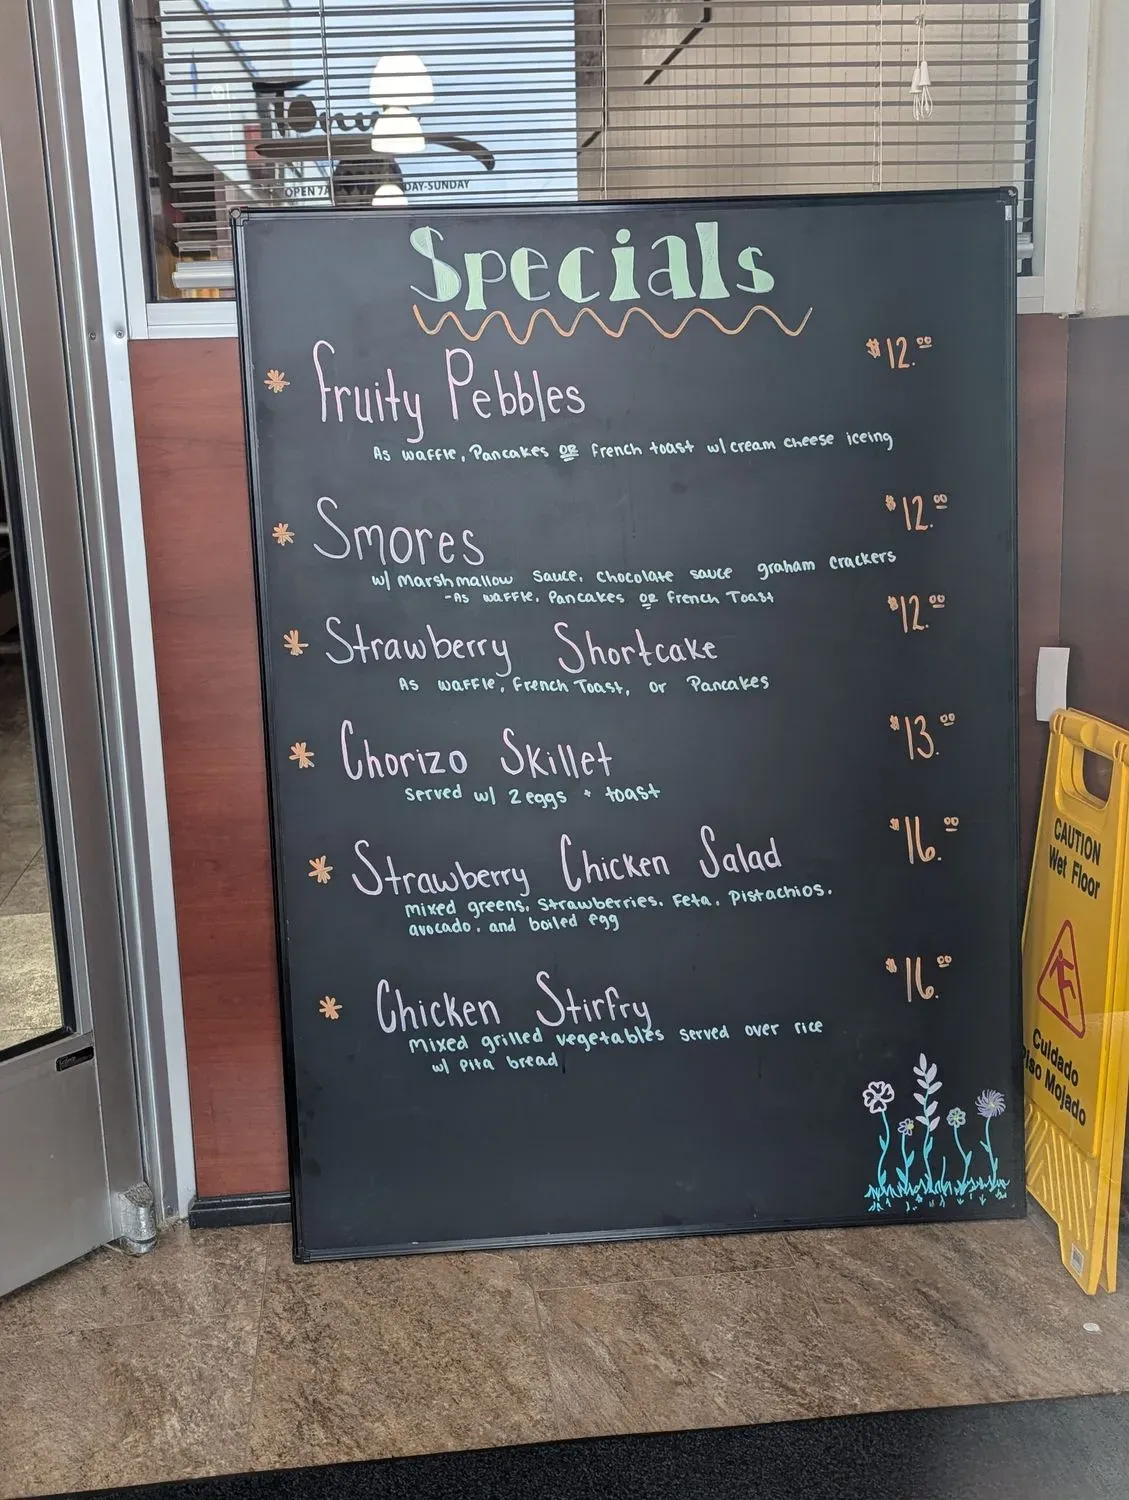 OPEN 7A DAY-SUNDAY
Specials
* Fruity Pebbles $12.00
As waffle, Pancakes OR French toast w/ cream cheese iceing
* Smores $12.00
w/ Marshmallow sauce, chocolate sauce graham crackers
-As waffle, Pancakes OR French Toast
* Strawberry Shortcake $12.00
As waffle, French Toast, or Pancakes
* Chorizo Skillet $13.00
served w/ 2 eggs + toast
* Strawberry Chicken Salad $16.00
mixed greens, strawberries, Feta, Pistachios,
avocado, and boiled egg
* Chicken Stirfry $16.00
Mixed grilled vegetables served over rice
w/ pita bread
CAUTION
Wet Floor
Cuidado
Piso Mojado